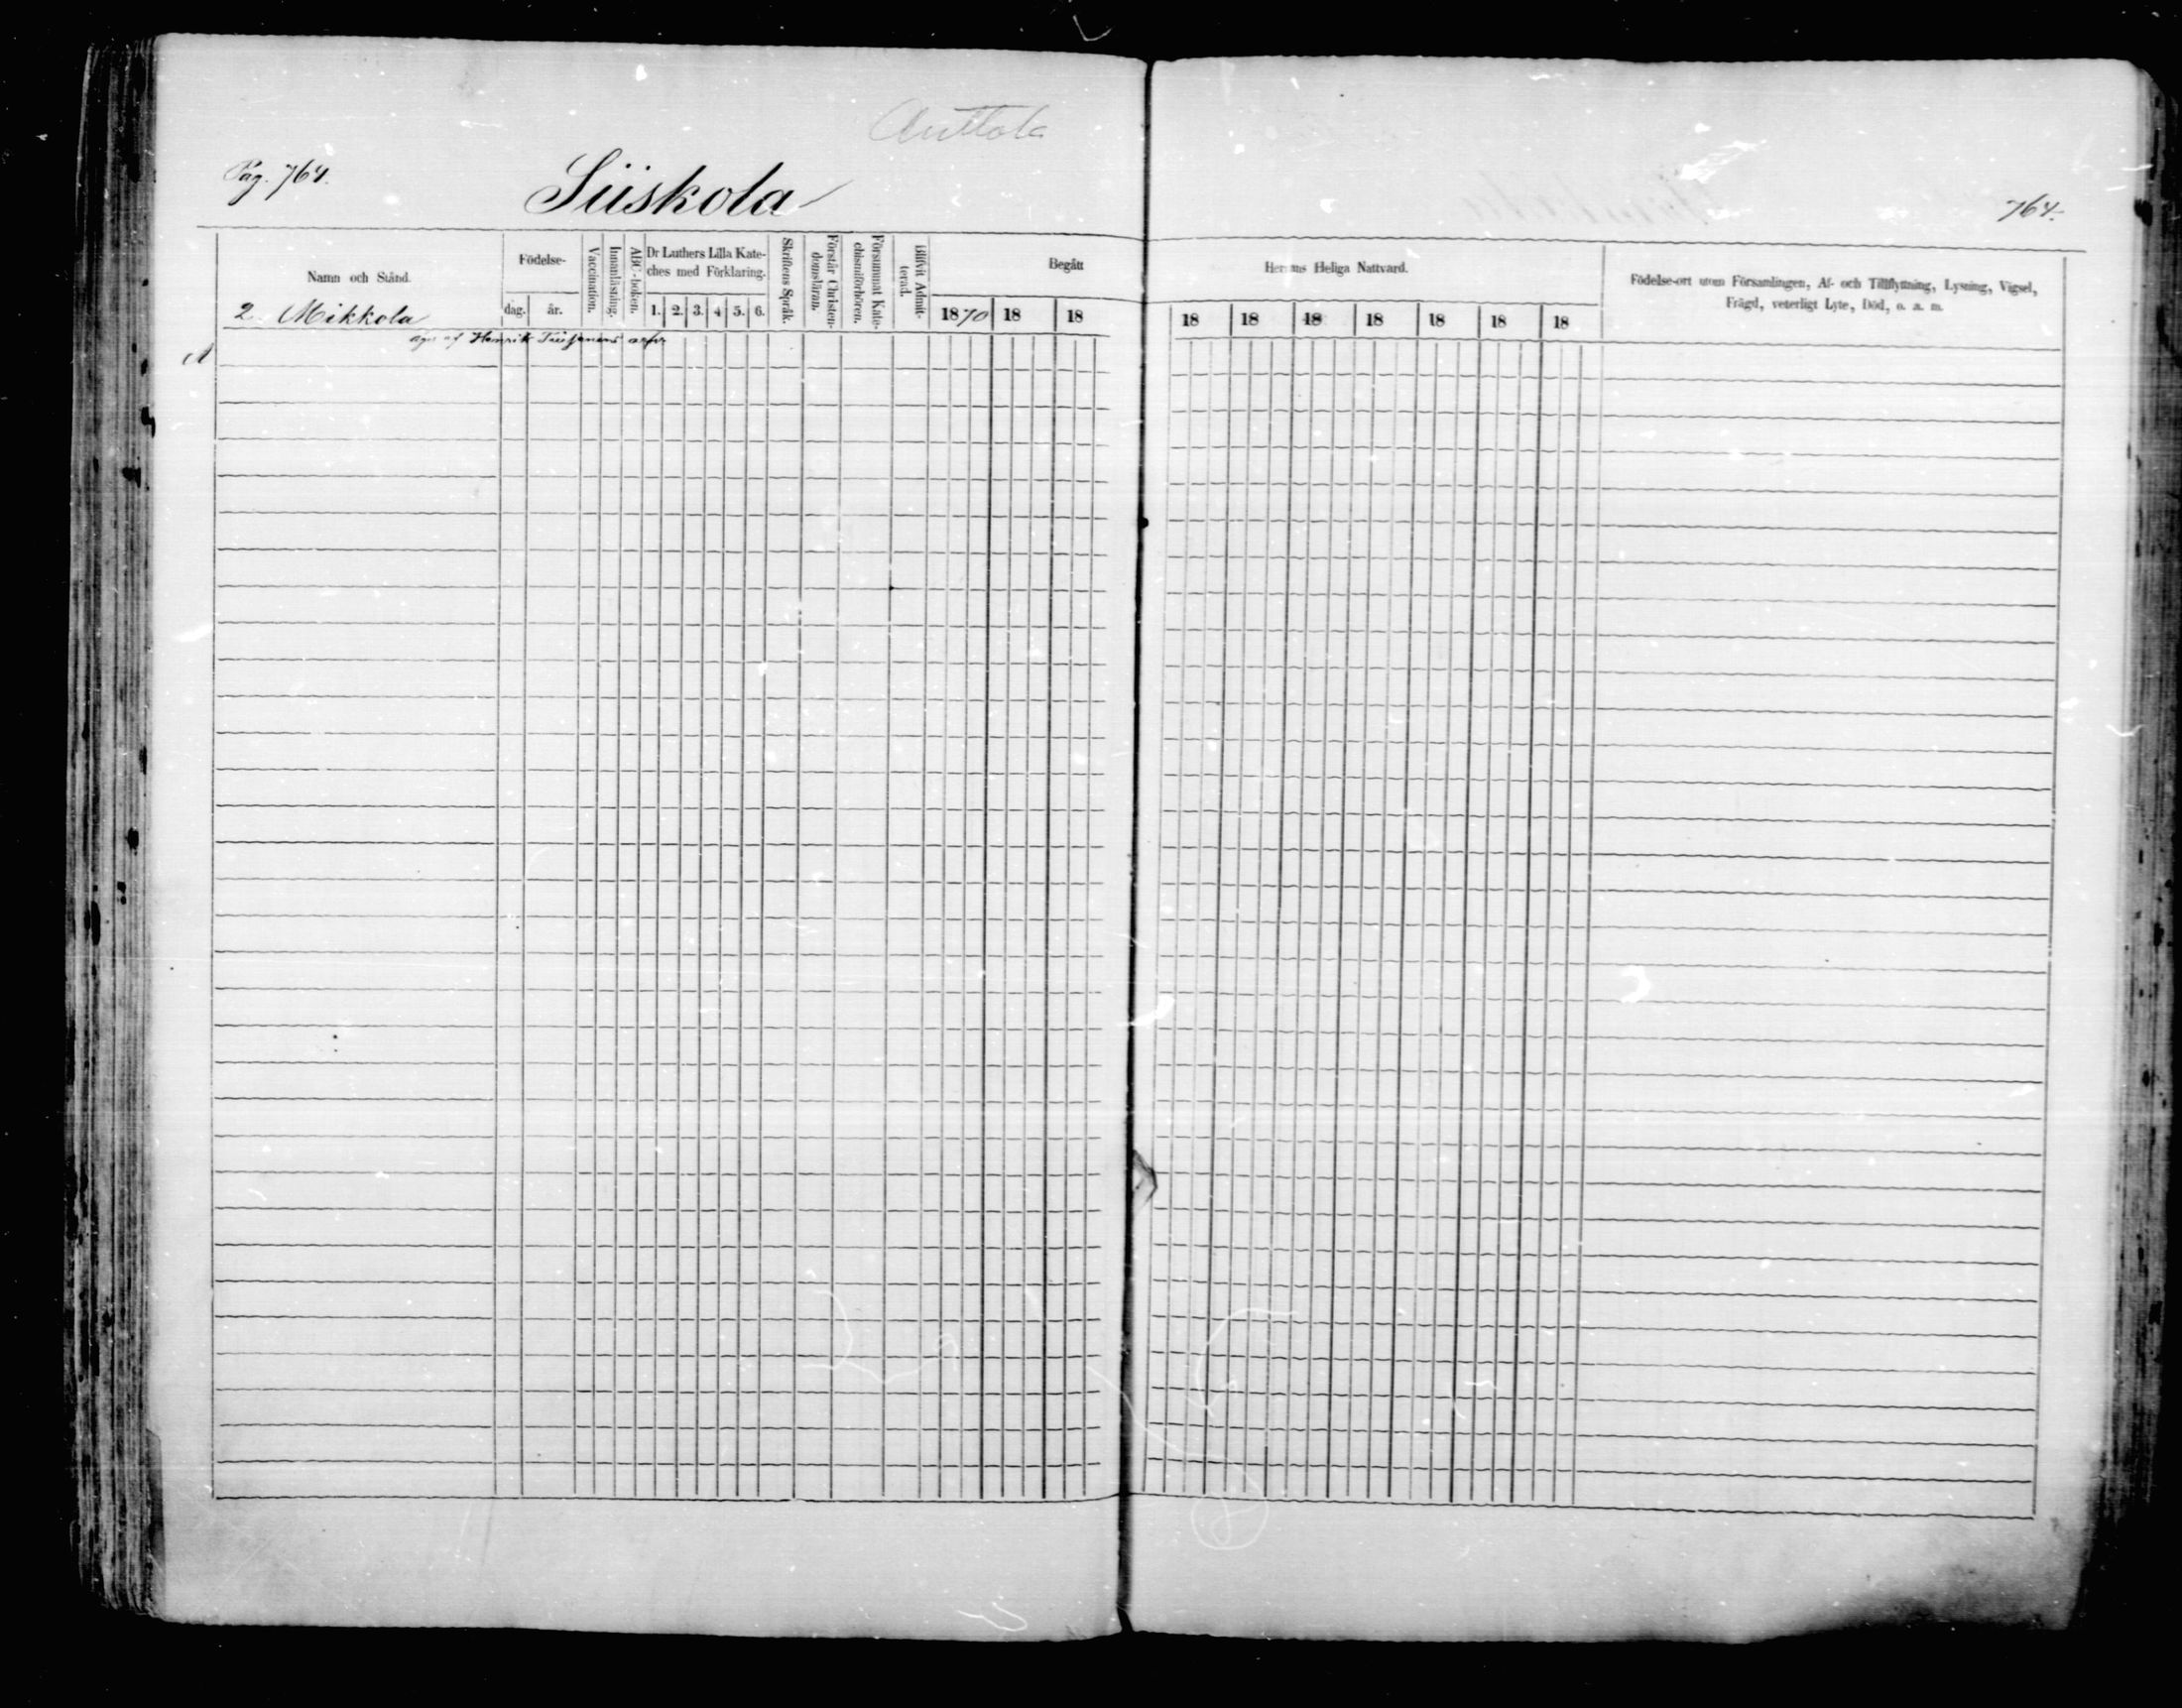 Anttola
Pag. 764.
Siiskola
764.
Namn och Stånd.
Födelse-
dag.
år.
Vaccination.
Innanläsning.
ABC-boken.
Dr Luthers Lilla Kate-
ches med Förklaring.
1. 2. 3. 4 5. 6.
Skriftens Språk.
Förstår Christen-
domsläran.
Försummat Kate-
chismiförhören.
Blifvit Admit-
terad.
Begått
Herrans Heliga Nattvard.
1870 18 18
18 18 18 18 18 18 18
Födelse-ort utom Församlingen, Af- och Tillflyttning, Lysning, Vigsel,
Frägd, veterligt Lyte, Död, o. a. m.
2. Mikkola
äges af Henrik arfvr